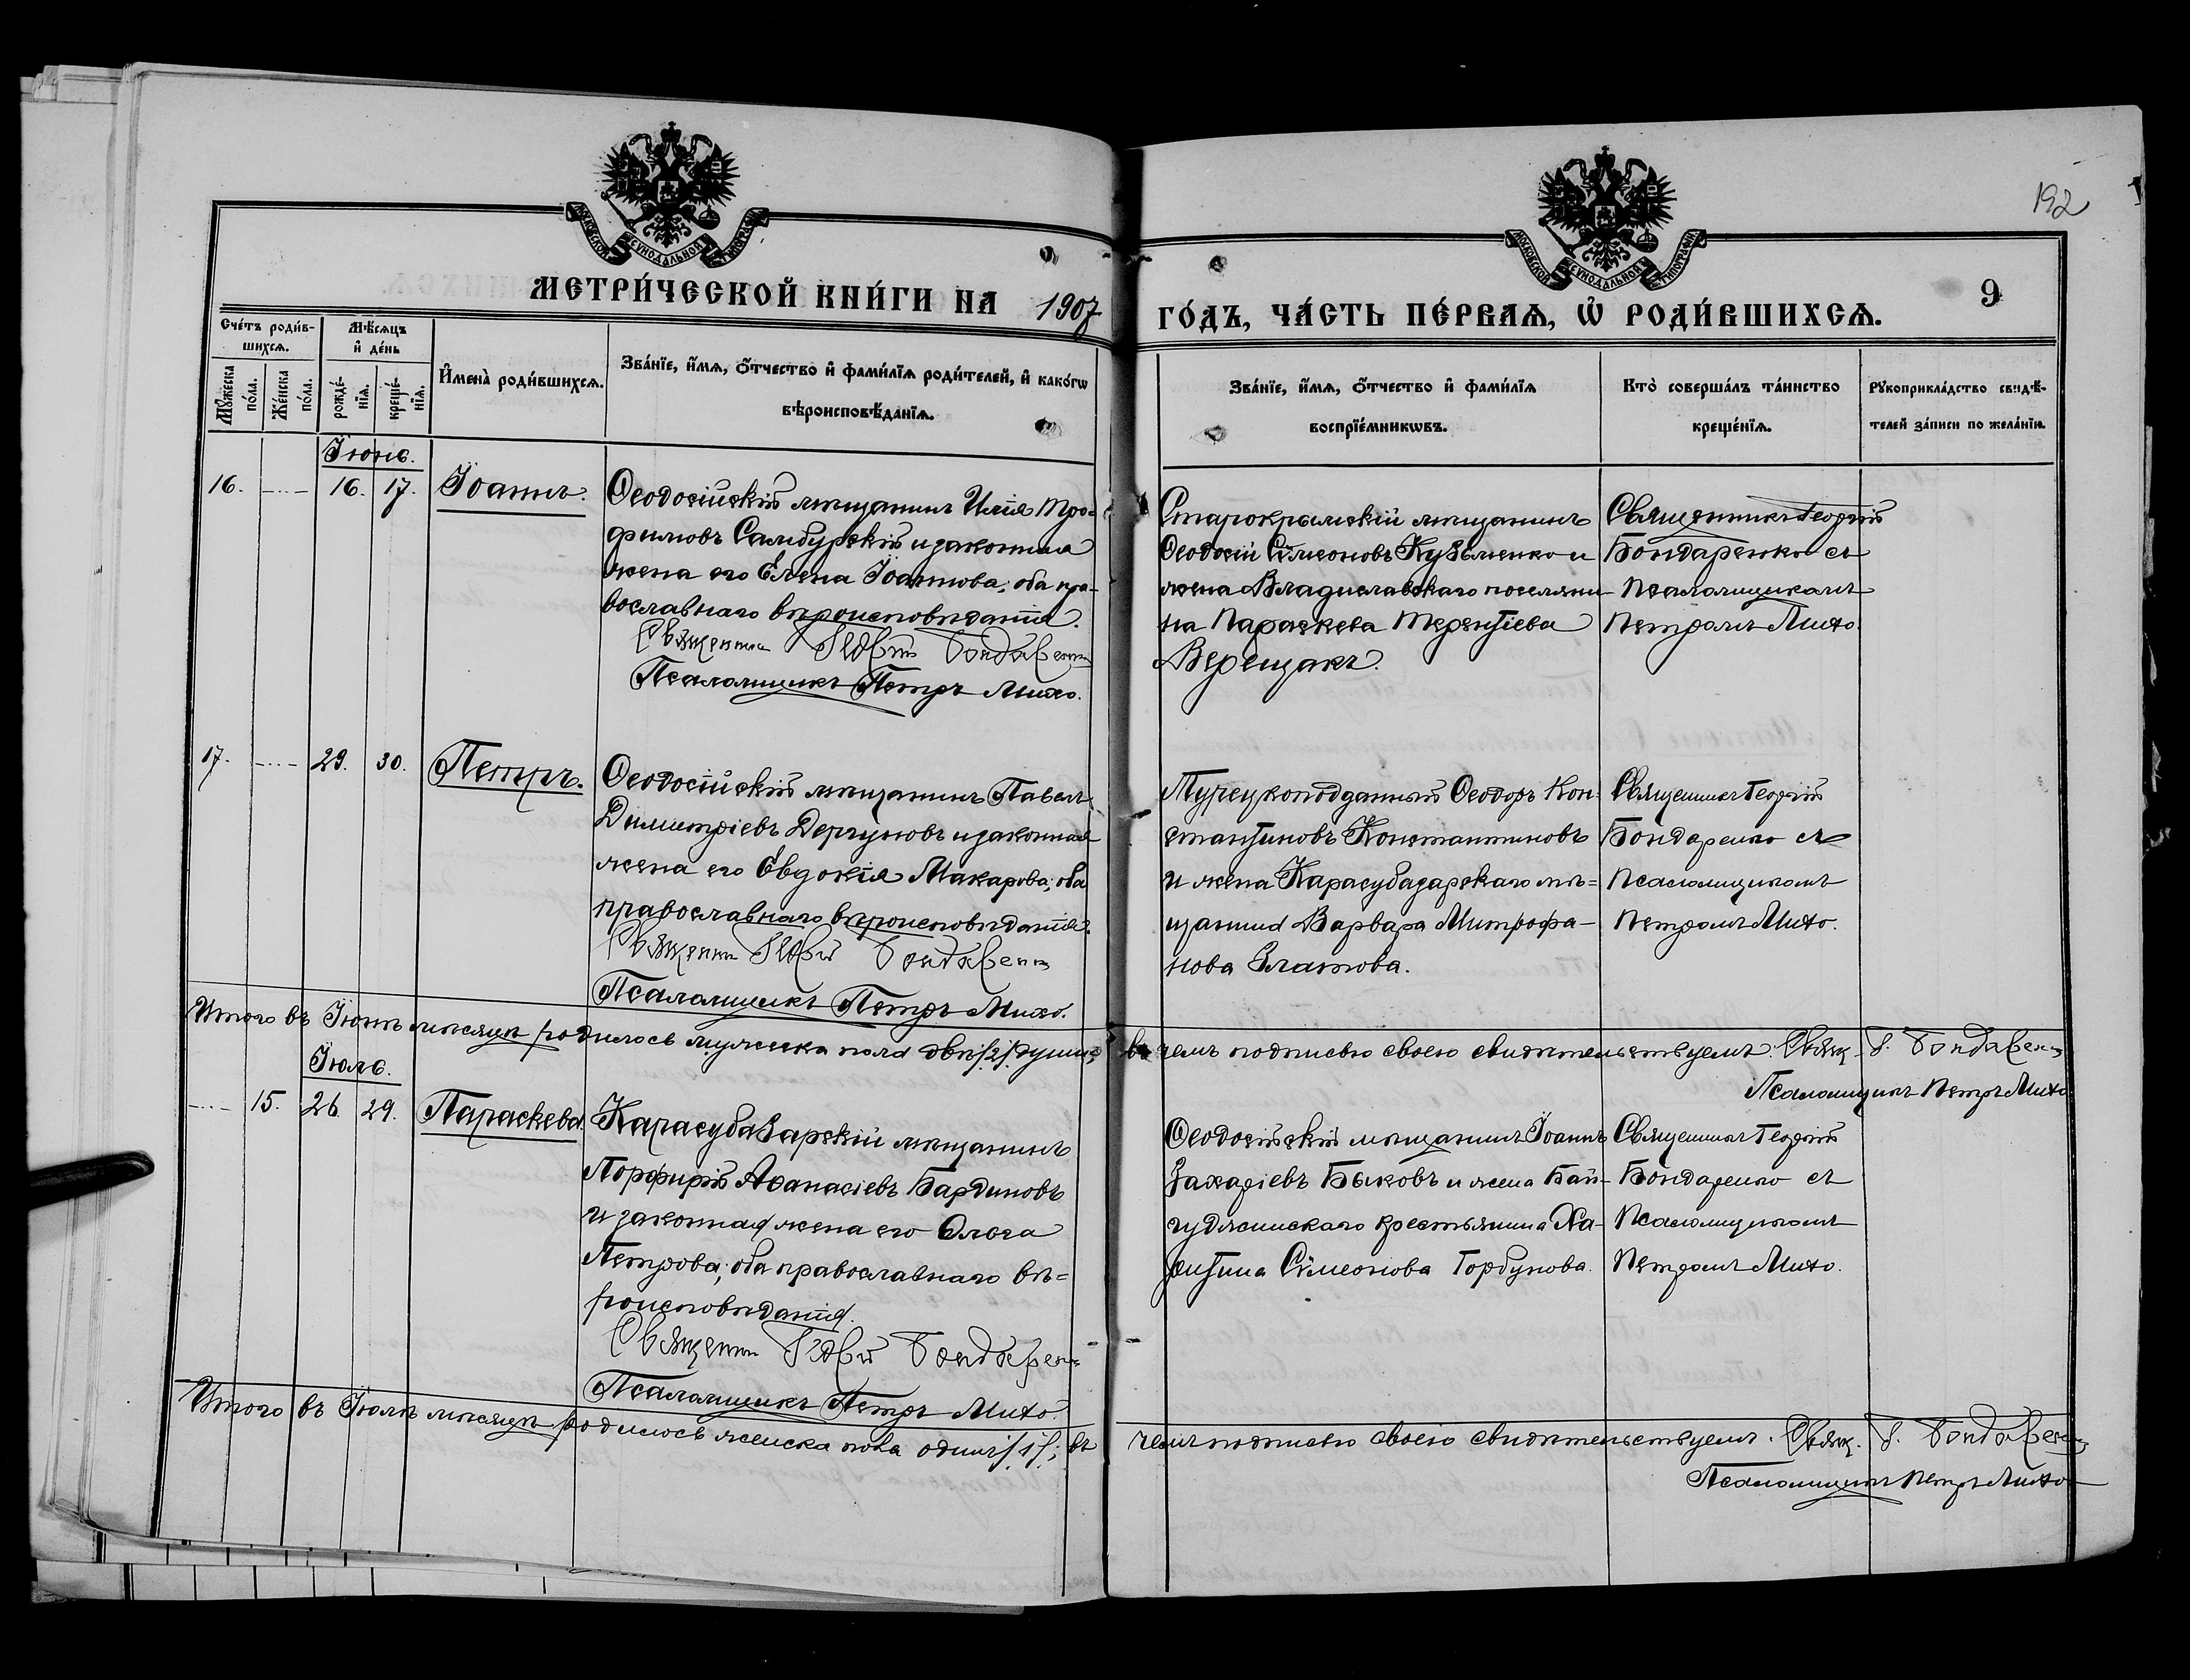 192
МОСКОВСКОЙ СѴНОДАЛЬНОЙ ТИПОГРАФІИ
МОСКОВСКОЙ СѴНОДАЛЬНОЙ ТИПОГРАФІИ
МЕТРИ́ЧЕСКОЙ КНИ́ГИ НА 1907
ГО́ДЪ, ЧА́СТЬ ПЕ́РВАѦ, Ѡ҆ РОДИ́ВШИХСѦ.
9
Сче́тъ роди́в-
шихсѧ.
Мѣ́сѧцъ
и҆ де́нь
Мꙋ́жеска
по́ла.
Же́нска
по́ла.
рожде́-
нїѧ.
креще́-
нїѧ.
И҆мена̀ роди́вшихсѧ.
Зва́нїе, и҆́мѧ, ѻ҆́тчество и҆ фами́лїѧ роди́телей, и҆ како́гѡ
вѣроисповѣ́данїѧ.
Зва́нїе, и҆́мѧ, ѻ҆́тчество и҆ фами́лїѧ
воспрїе́мникѡвъ.
Кто̀ соверша́лъ та́инство
креще́нїѧ.
Рꙋкоприкла́дство свидѣ́-
телей за́писи по жела́нїю.
Іюнь.
16.
16.
17.
Іоаннъ.
Ѳеодосійскій мѣщанинъ Илія Тро-
фимовъ Самбурскій и законная
жена его Елена Іоаннова; оба пра-
вославнаго вѣроисповѣданія.
Священникъ Георгій Бондаренко
Псаломщикъ Петръ Михо.
Старокрымскій мѣщанинъ
Ѳеодосій Сѵмеоновъ Кузьменко и
жена Владиславскаго поселяни-
на Параскева Терентіева
Верещакъ.
Священникъ Георгій
Бондаренко съ
псаломщикомъ
Петромъ Михо.
17.
29.
30.
Петръ.
Ѳеодосійскій мѣщанинъ Павелъ
Димитріевъ Дергуновъ и законная
жена его Евдокія Макарова; оба
православнаго вѣроисповѣданія.
Священникъ Георгій Бондаренко
Псаломщикъ Петръ Михо.
Турецкоподданный Ѳеодоръ Кон-
стантиновъ Константиновъ
и жена Карасубазарскаго мѣ-
щанина Варвара Митрофа-
нова Златова.
Священникъ Георгій
Бондаренко съ
псаломщикомъ
Петромъ Михо.
Итого въ Іюнѣ мѣсяцѣ родилось мужеска пола двѣ /2/ души; въ чемъ подписью своею свидѣтельствуемъ. Свящ. Г. Бондаренко
Псаломщикъ Петръ Михо
Іюль.
15.
26.
29.
Параскева.
Карасубазарскій мѣщанинъ
Порфирій Аѳанасіевъ Бардиновъ
и законная жена его Ольга
Петрова; оба православнаго вѣ-
роисповѣданія.
Священникъ Георгій Бондаренко
Псаломщикъ Петръ Михо.
Ѳеодосійскій мѣщанинъ Іоаннъ
Захаріевъ Быковъ и жена Бай-
гуджинскаго крестьянина Ха-
ритина Сѵмеонова Горбунова.
Священникъ Георгій
Бондаренко съ
Псаломщикомъ
Петромъ Михо.
Итого въ Іюлѣ мѣсяцѣ родилось женска пола одинъ /1/; въ чемъ подписью своею свидѣтельствуемъ. Свящ. Г. Бондаренко
Псаломщикъ Петръ Михо